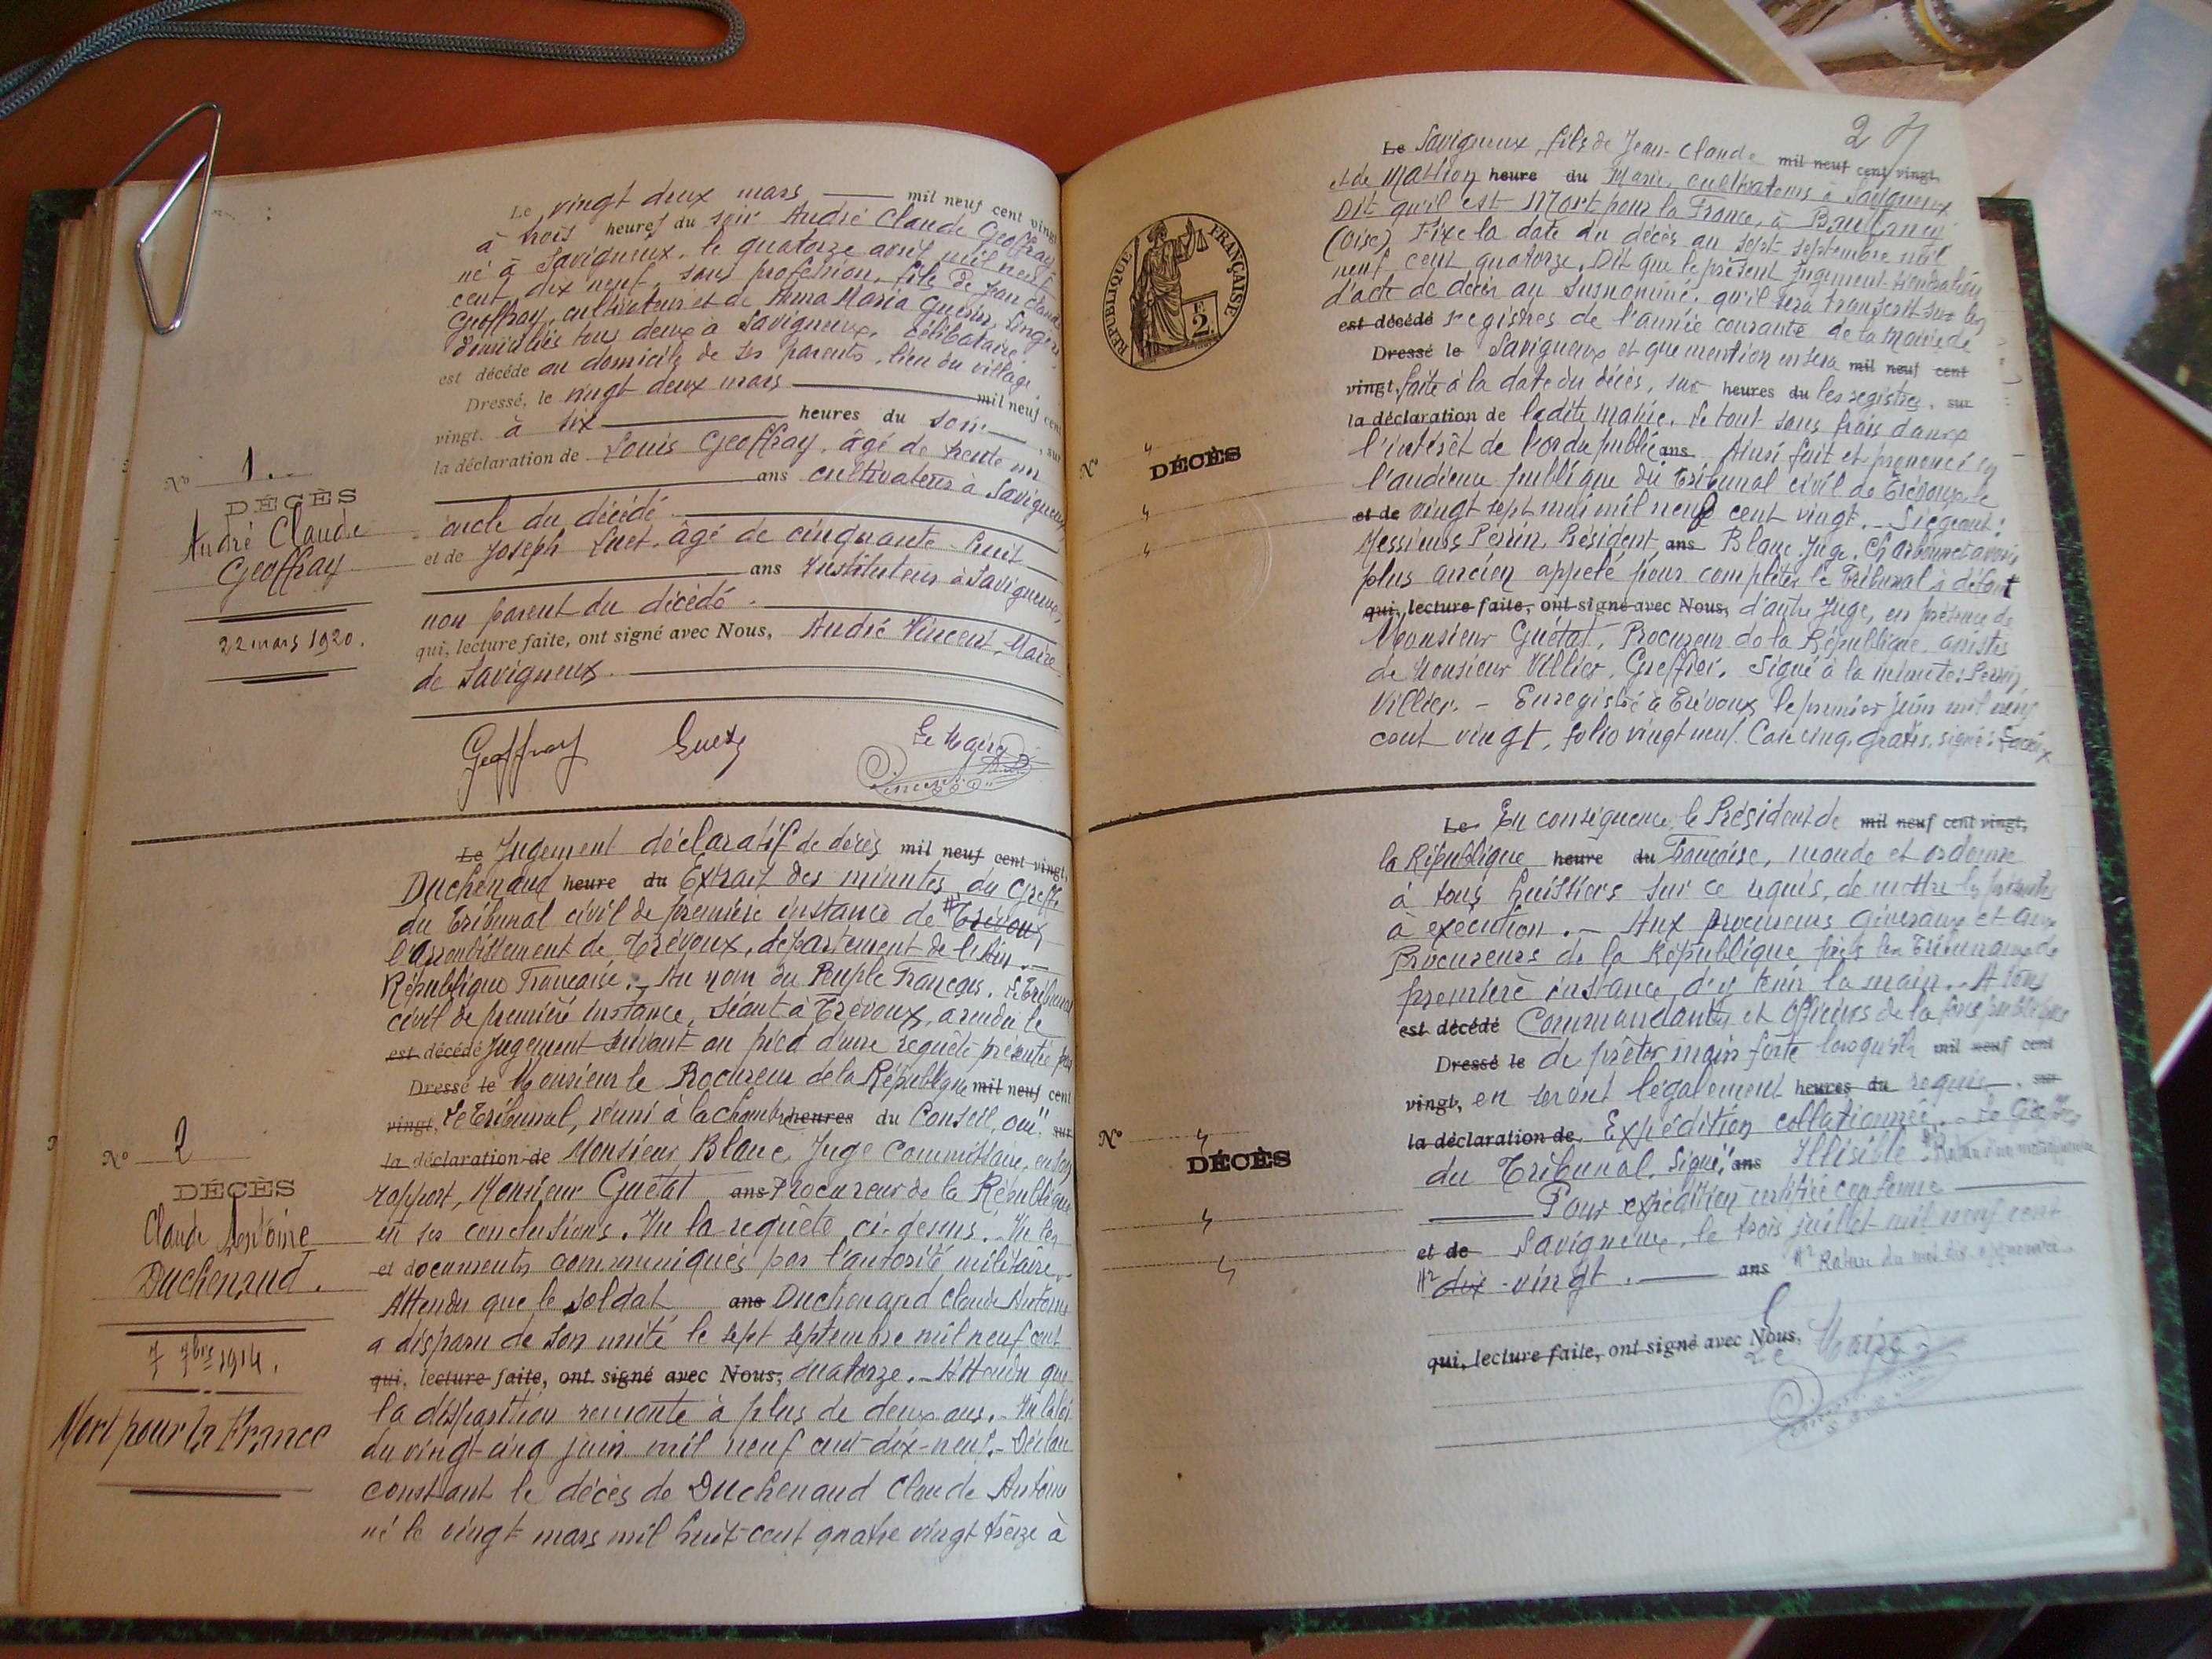 Le vingt deux mars mil neuf cent vingt
à trois heures du soir André Claude Geoffray
né à Savigneux, le quatorze avril mil neuf
cent dix neuf, sans profession, fils de Jean Claude
Geoffray, cultivateur et de Anna Maria Guérin, lingère
domiciliés tous deux à Savigneux, célibataire,
est décédé au domicile de ses parents, lieu du village.
Dressé, le vingt deux mars mil neuf cent
vingt. à six heures du soir, sur
la déclaration de Louis Geoffray, âgé de trente un
ans cultivateur à Savigneux,
oncle du décédé
et de Joseph Suet, âgé de cinquante huit
ans Instituteur à Savigneux,
non parent du décédé.
qui, lecture faite, ont signé avec Nous, André Vincent, Maire
de Savigneux.
Geoffray Le Maire
No 1.
DÉCÈS
André Claude
Geoffray
22 mars 1920.
Le Jugement déclaratif de décès mil neuf cent vingt,
Duchenaud heure du Extrait des minutes du Greffe
du Tribunal civil de première instance de Trévoux
l'arrondissement de Trévoux, département de l'Ain.
République Française. Au nom du Peuple Français. Le Tribunal
civil de première instance, séant à Trévoux, a rendu le
est décédé Jugement suivant au pied d'une requête présentée par
Dressé le Monsieur le Procureur de la République mil neuf cent
vingt, Le Tribunal, réuni à la chambre heures du Conseil, ouï sur
la déclaration de Monsieur Blanc, Juge Commissaire, en son
rapport, Monsieur Guétat ans Procureur de la République
en ses conclusions. Vu la requête ci-dessus. Vu les
et documents communiqués par l'autorité militaire.
Attendu que le soldat ans Duchenaud Claude Antoine
a disparu de son unité le sept septembre mil neuf cent
qui, lecture faite, ont signé avec Nous, quatorze. - Attendu que
la disparition remonte à plus de deux ans. - Vu la loi
du vingt-cinq juin mil neuf cent dix-neuf. - Déclare
constant le décès de Duchenaud Claude Antoine
né le vingt mars mil huit cent quatre vingt treize à
No 2
DÉCÈS
Claude Antoine
Duchenaud.
7 7bre 1914.
Mort pour la France
2
Le Savigneux, fils de Jean-Claude mil neuf cent vingt,
et de Mathon heure du Marie, cultivateurs à Savigneux
Dit qu'il est Mort pour la France, à
(Oise) Fixe la date du décès au sept septembre mil
neuf cent quatorze. Dit que le présent jugement tiendra lieu
d'acte de décès au susnommé. qu'il sera transcrit sur les
est décédé registres de l'année courante de la mairie de
Dressé le Savigneux et que mention en sera mil neuf cent
vingt, faite à la date du décès, sur heures du les registres, sur
la déclaration de ladite mairie. Le tout sans frais dans
l'intérêt de l'ordre public ans Ainsi fait et prononcé en
l'audience publique du Tribunal civil de Trévoux le
et de vingt sept mai mil neuf cent vingt. - Siégeant:
Messieurs Perrin, Président, ans Blanc, Juge, Charbonnet avoué
plus ancien appelé pour compléter le Tribunal à défaut
qui, lecture faite, ont signé avec Nous, d'autre Juge, en présence de
Monsieur Guétat, Procureur de la République, assistés
de Monsieur Villier, Greffier. Signé à la minute: Perrin,
Villier. - Enregistré à Trévoux le premier juin mil neuf
cent vingt, folio vingt neuf. Case cinq. gratis. signé:
RÉPUBLIQUE FRANÇAISE
2
F
No
DÉCÈS
Le En conséquence, le Président de mil neuf cent vingt,
la République heure du Française, mande et ordonne
à tous huissiers sur ce requis, de mettre les présentes
à exécution. - Aux procureurs généraux et aux
Procureurs de la République près les Tribunaux de
première instance, d'y tenir la main. - A tous
est décédé Commandants et officiers de la force publique
Dressé le de prêter main forte lorsqu'ils mil neuf cent
vingt, en seront légalement heures du requis. sur
la déclaration de Expédition collationnée. - Le Greffier
du Tribunal. Signé: ans Illisible.
Pour expédition certifiée conforme
et de Savigneux, le trois juillet mil neuf cent
dix - vingt. ans
qui, lecture faite, ont signé avec Nous,
Le Maire
No
DÉCÈS